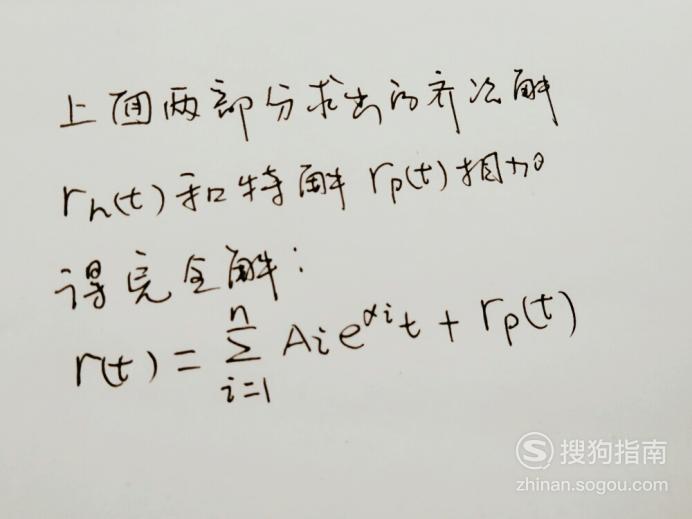 上面两部分求出的齐次解
rₕ(t)和特解 rₚ(t)相加
得完全解：
r(t) = \sum_{i=1}^{n} A_i e^{α_i t} + r_p(t)
搜狗指南
zhinan.sogou.com